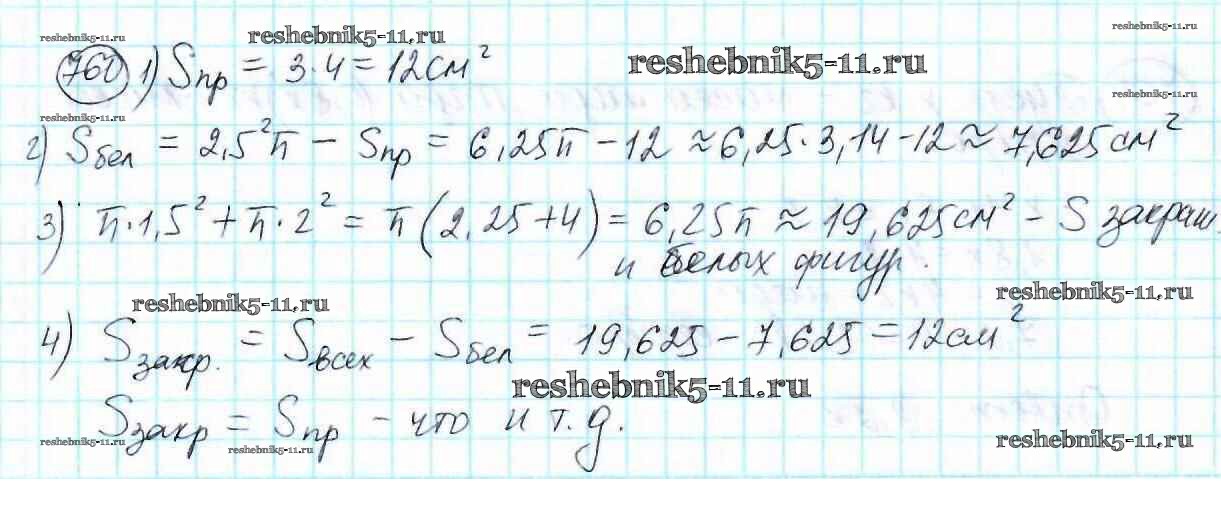 reshebnik5-11.ru
reshebnik5-11.ru
reshebnik5-11.ru
760 1) Sпр = 3·4 = 12см²
reshebnik5-11.ru
reshebnik5-11.ru
reshebnik5-11.ru
2) Sбел = 2,5²π − Sпр = 6,25π − 12 ≈ 6,25·3,14−12 ≈ 7,625см²
3) π·1,5² + π·2² = π(2,25+4) = 6,25π ≈ 19,625см² − S закраш.
и белых фигур.
reshebnik5-11.ru
reshebnik5-11.ru
4) Sзакр. = Sвсех − Sбел = 19,625 − 7,625 = 12см²
reshebnik5-11.ru
Sзакр = Sпр − что и т.д.
reshebnik5-11.ru
reshebnik5-11.ru
reshebnik5-11.ru